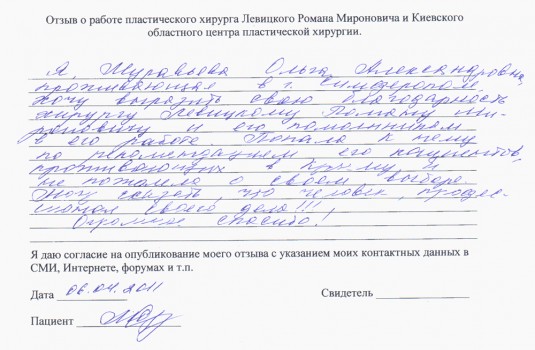 Отзыв о работе пластического хирурга Левицкого Романа Мироновича и Киевского
областного центра пластической хирургии.
Я, Муравьева Ольга Александровна,
проживающая в г. Симферополе,
хочу выразить свою благодарность
хирургу Левицкому Роману Ми-
роновичу и его помощникам
в его работе. Попала к нему
по рекомендациям его пациентов,
проживающих в Крыму и
не пожалела о своем выборе.
Могу сказать, что человек, профес-
сионал своего дела!!!
Огромное спасибо!
Я даю согласие на опубликование моего отзыва с указанием моих контактных данных в
СМИ, Интернете, форумах и т.п.
Дата 06.04.2011 Свидетель
Пациент